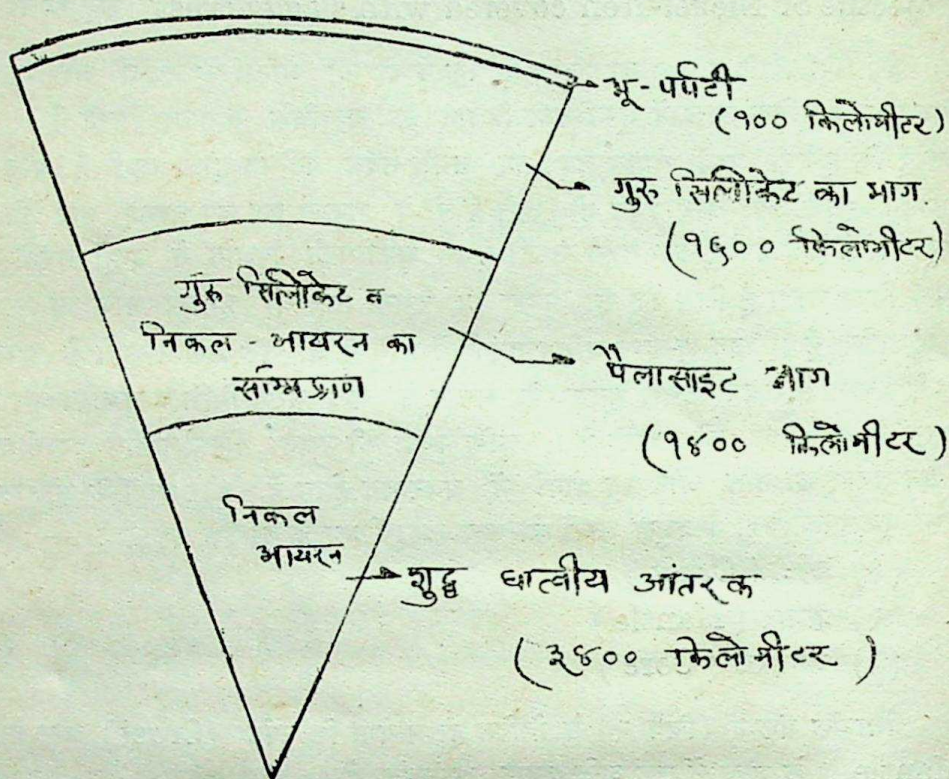 भू-पर्पटी
(१०० किलोमीटर)
गुरु सिलीकेट का भाग.
(१६०० किलोमीटर)
गुरु सिलीकेट व
निकल - आयरन का
सम्मिश्रण
पैलासाइट भाग
(१४०० किलोमीटर)
निकल
आयरन
शुद्ध धात्वीय आंतरक
(३४०० किलोमीटर)